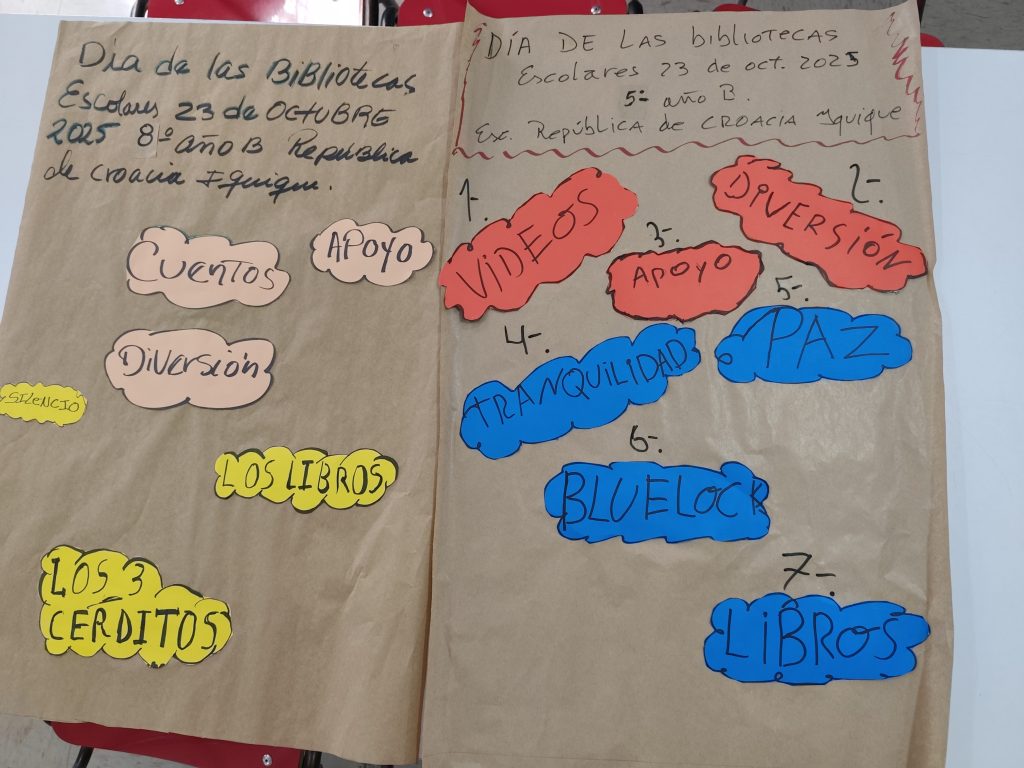 Dia de las BiBliotecas
Escolares 23 de OCTUBRE
2025 8º año B República
de croacia Iquique.
CUENTOS
APOYO
DiVERSIÓN
SILENCIO
LOS LIBROS
LOS 3
CERDITOS
DÍA DE LAS bibliotecas
Escolares 23 de oct. 2025
5º año B.
Esc. República de CROACIA Iquique
1-.
VIDEOS
2-.
DiVERSIÓN
3-.
APOYO
4-.
TRANQUILIDAD
5-.
PAZ
6-.
BLUELOCK
7-.
LIBROS